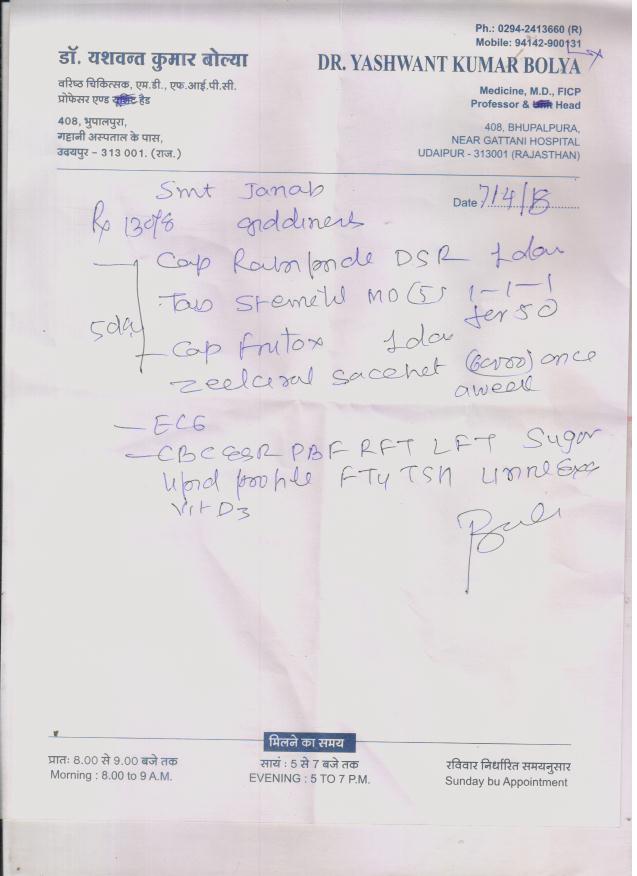 Ph.: 0294-2413660 (R)
Mobile: 94142-900131
डॉ. यशवन्त कुमार बोल्या
DR. YASHWANT KUMAR BOLYA
वरिष्ठ चिकित्सक, एम.डी., एफ.आई.पी.सी.
प्रोफेसर एण्ड हैड
Medicine, M.D., FICP
Professor & Head
408, भुपालपुरा,
गट्टानी अस्पताल के पास,
उदयपुर - 313 001. (राज.)
408, BHUPALPURA,
NEAR GATTANI HOSPITAL
UDAIPUR - 313001 (RAJASTHAN)
Smt Janab
Date 7/4/18
Rx 130/8 giddiness
Cap DSR 1 daily
Tab Stemetil MD (5) 1-1-1
5 day
Cap 1 daily
sachet (60000) once
a week
ECG
CBC ESR PBF RFT LFT Sugar
Lipid profile TSH Urine
Vit D3
मिलने का समय
प्रातः 8.00 से 9.00 बजे तक
Morning : 8.00 to 9 A.M.
सायं : 5 से 7 बजे तक
EVENING : 5 TO 7 P.M.
रविवार निर्धारित समयनुसार
Sunday bu Appointment